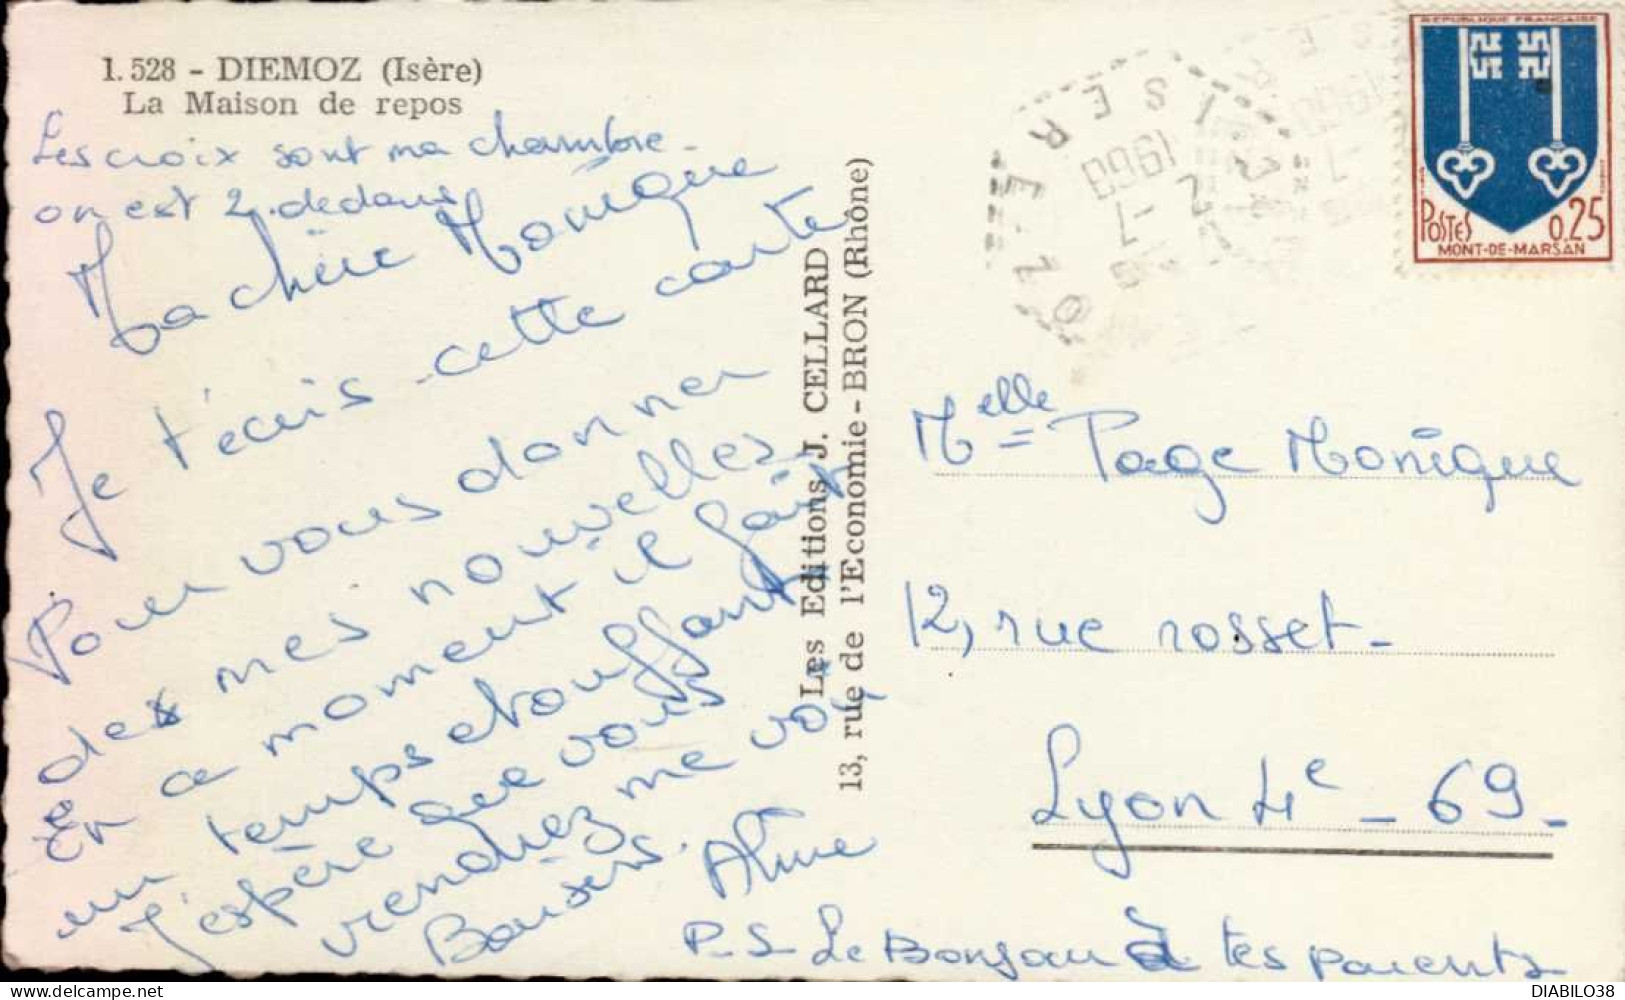 1.528 - DIEMOZ (Isère)
La Maison de repos
Les croix sont ma chambre -
on est 2. dedans
Ma chère Monique
Je t'écris cette carte
Pour vous donner
des mes nouvelles
en ce moment il fait
un temps étouffant
J'espère que vous
vendiez me voir
Bousers. Aline
P.S Le Bonjour à tes parents
Les Editions J. CELLARD
13, rue de l'Economie - BRON (Rhône)
OZ - ISERE
7 - 7
1969
REPUBLIQUE FRANÇAISE
POSTES 0,25
MONT-DE-MARSAN
Melle Page Monique
12, rue rosset -
Lyon 4e - 69 -
DIABILO38